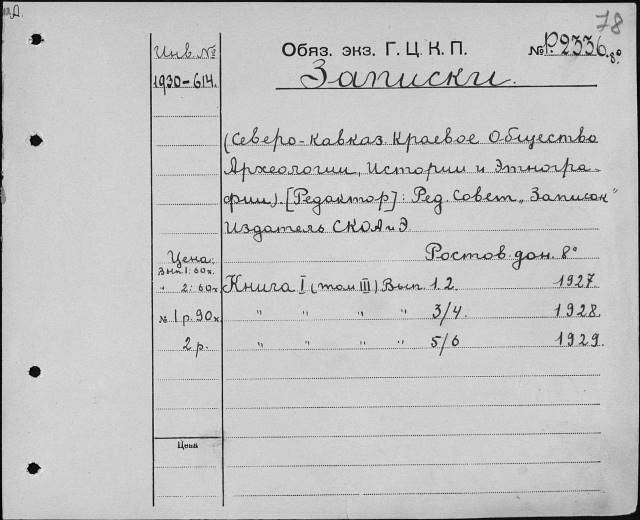 78
Инв. №
1930-614.
Обяз. экз. Г. Ц. К. П.
№ P.2336.8°
Записки.
(Северо-Кавказ. Краевое Общество
Археологии, Истории и Этногра-
фии). [Редактор]: Ред. Совет „Записок"
Издатель СКОАиЭ.
Ростов дон. 8°
Цена:
Вып 1: 60к.
" 2: 60к. Книга I (том III) Вып. 1.2. 1927.
№ 1 р. 90к " " " " 3/4. 1928.
2 р. " " " " 5/6 1929.
Цена